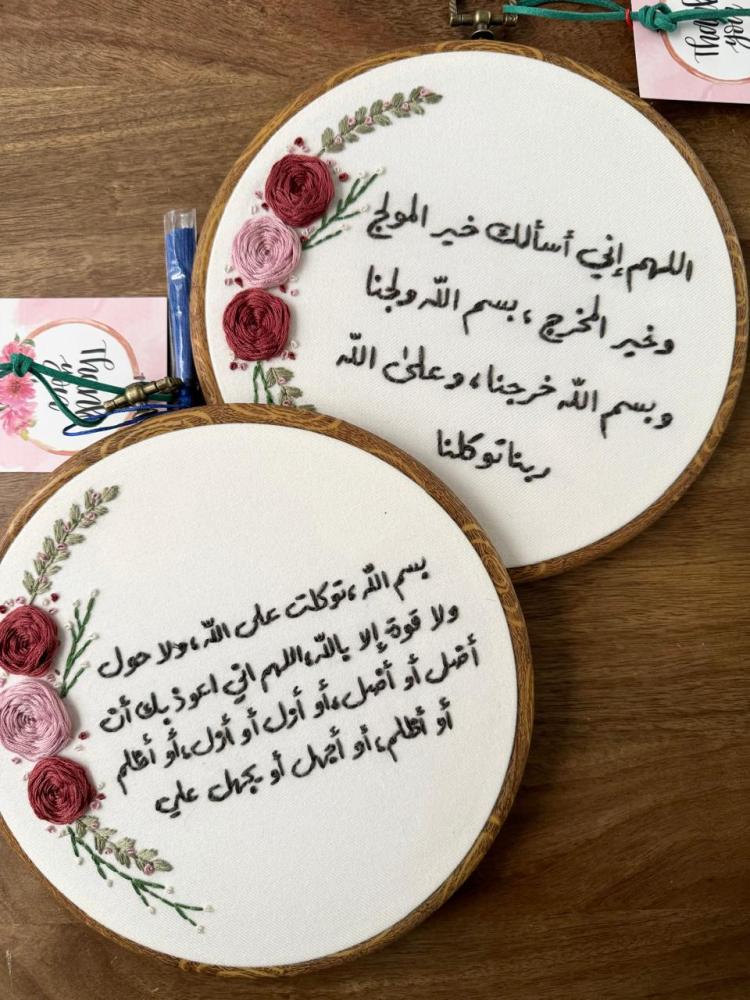 اللهم إني أسألك خير المولج
وخير المخرج ، بسم الله ولجنا
وبسم الله خرجنا ، وعلى الله
ربنا توكلنا
بسم الله ، توكلت على الله ، ولا حول
ولا قوة إلا بالله ، اللهم اني اعوذ بك أن
أضل أو أضل ، أو أزل أو أزل ، أو أظلم
أو أظلم ، أو أجهل أو يجهل علي
Thank
you
Thank
you